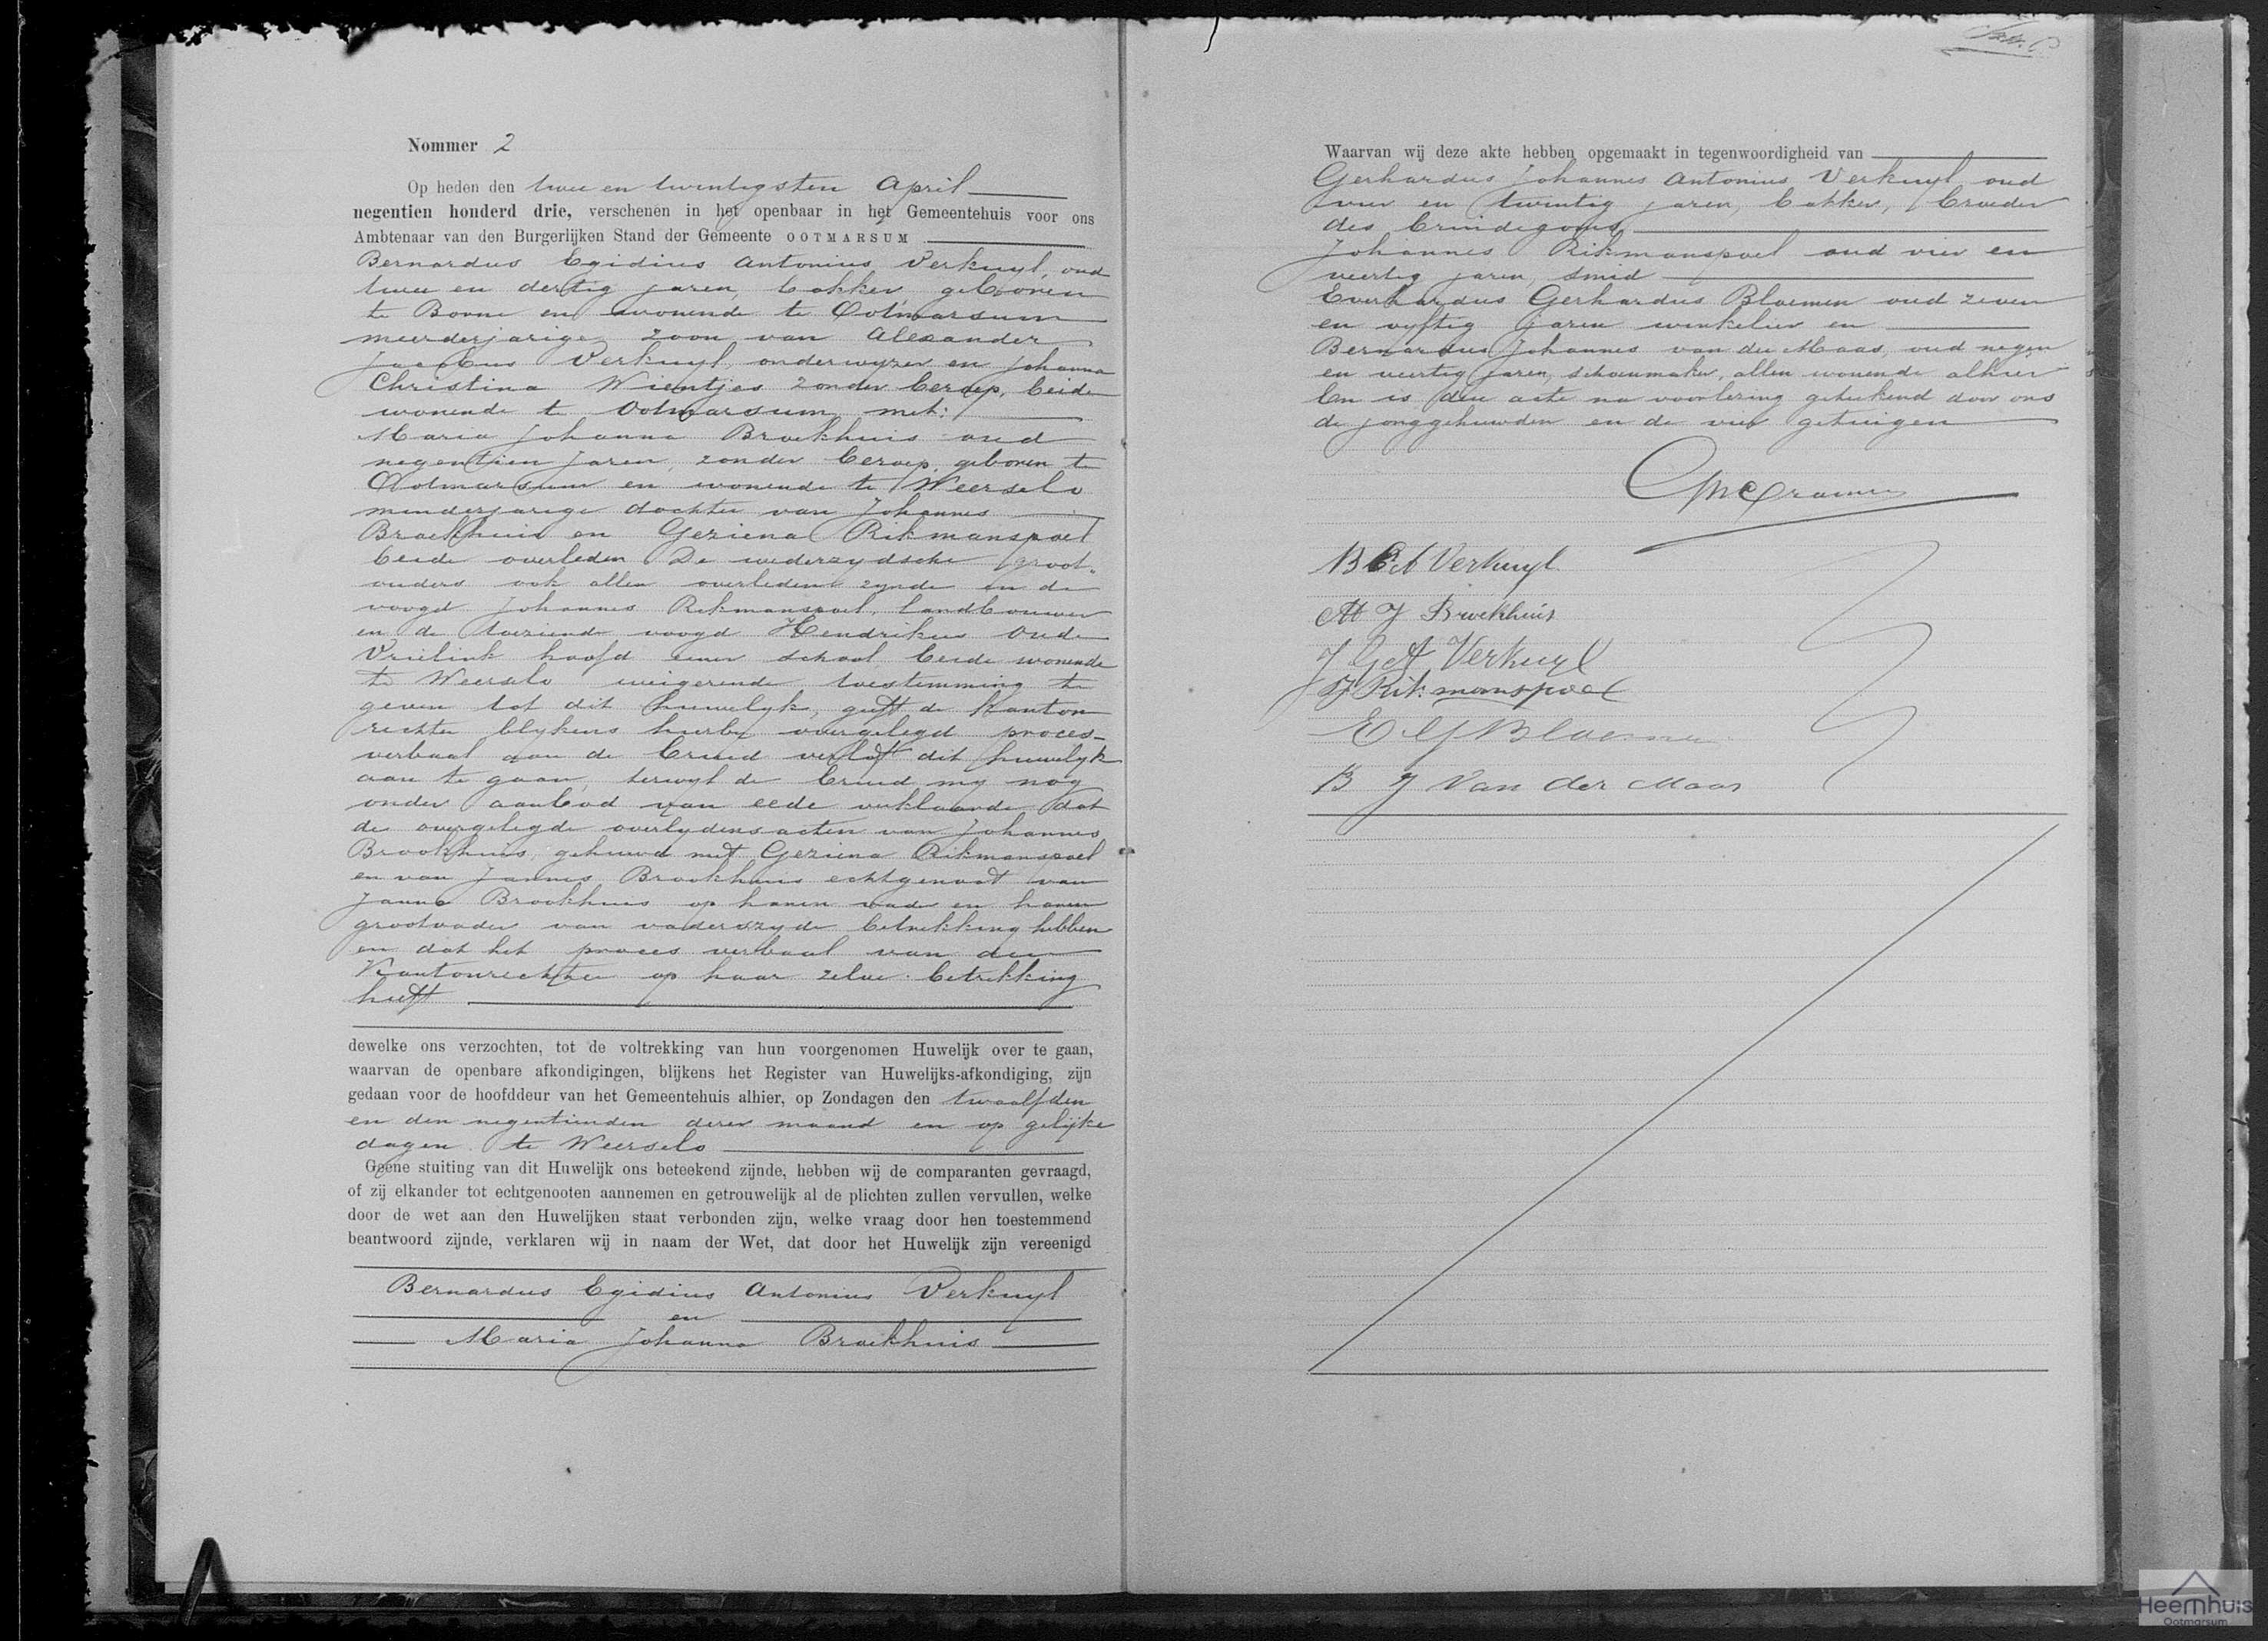 Nommer 2
Op heden den twee en twintigsten April
negentien honderd drie, verschenen in het openbaar in het Gemeentehuis voor ons
Ambtenaar van den Burgerlijken Stand der Gemeente OOTMARSUM
Bernardus Egidius Antonius Verkuyl, oud
twee en dertig jaren, bakker, geboren
te Borne en wonende te Ootmarsum
meerderjarige zoon van Alexander
Jacobus Verkuyl, onderwyzer en Johanna
Christina Wientjes zonder beroep, beide
wonende te Ootmarsum, met:
Maria Johanna Broekhuis oud
negentien jaren, zonder beroep, geboren te
Ootmarsum en wonende te Weerselo
minderjarige dochter van Johannes
Broekhuis en Geziena Rikmanspoel
beide overleden De wederzydsche groot-
ouders ook allen overleden zynde en de
voogd Johannes Rikmanspoel, landbouwer
en de toeziende voogd Hendrikus Oude
Vrielink hoofd eener school beide wonende
te Weerselo weigerende toestemming te
geven tot dit huwelyk, geeft de Kanton
rechter blykens hierby overgelegd proces-
verbaal aan de bruid verlof dit huwelyk
aan te gaan, terwyl de bruid my nog
onder aanbod van eede verklaarde dat
de overgelegde overlydensacten van Johannes
Broekhuis, gehuwd met Geziena Rikmanspoel
en van Jannes Broekhuis echtgenoot van
Janna Broekhuis op haren vader en haren
grootvader van vaderszyde betrekking hebben
en dat het proces verbaal van den
Kantonrechter op haar zelve betrekking
heeft
dewelke ons verzochten, tot de voltrekking van hun voorgenomen Huwelijk over te gaan,
waarvan de openbare afkondigingen, blijkens het Register van Huwelijks-afkondiging, zijn
gedaan voor de hoofddeur van het Gemeentehuis alhier, op Zondagen den twaalfden
en den negentienden dezer maand en op gelijke
dagen te Weerselo
Geene stuiting van dit Huwelijk ons beteekend zijnde, hebben wij de comparanten gevraagd,
of zij elkander tot echtgenooten aannemen en getrouwelijk al de plichten zullen vervullen, welke
door de wet aan den Huwelijken staat verbonden zijn, welke vraag door hen toestemmend
beantwoord zijnde, verklaren wij in naam der Wet, dat door het Huwelijk zijn vereenigd
Bernardus Egidius Antonius Verkuyl
en
Maria Johanna Broekhuis
Waarvan wij deze akte hebben opgemaakt in tegenwoordigheid van
Gerhardus Johannes Antonius Verkuyl oud
vier en twintig jaren, bakker, broeder
des bruidegoms,
Johannes Rikmanspoel oud vier en
veertig jaren, smid
Everhardus Gerhardus Bloemen oud zeven
en vyftig jaren winkelier en
Bernardus Johannes van der Maas, oud negen
en veertig jaren, schoenmaker, allen wonende alhier
En is deze acte na voorlezing geteekend door ons
de jonggehuwden en de vier getuigen
B E A Verkuyl
M J Broekhuis
J G A Verkuyl
J Rikmanspoel
E G Bloemen
B J Van der Maas
Heemhuis
Ootmarsum